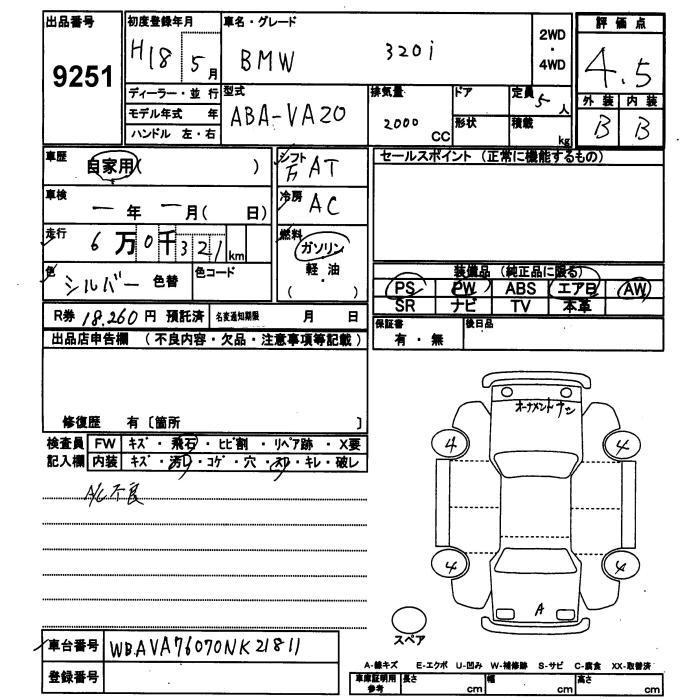 出品番号
9251
初度登録年月
H18 5月
車名・グレード
BMW 320i
2WD・4WD
評価点
4.5
外装 内装
B B
ディーラー・並行
モデル年式 年
ハンドル 左・右
型式
ABA-VA20
排気量
2000 CC
ドア
形状
定員 5人
積載 kg
車歴
自家用( )
シフト
F AT
車検
一年一月( 日)
冷房
AC
走行
6万0千321km
燃料
ガソリン
軽油
・
( )
色
シルバー 色替
色コード
R券 18,260円 預託済
名変通知期限 月 日
セールスポイント (正常に機能するもの)
装備品 (純正品に限る)
PS PW ABS エアB AW
SR ナビ TV 本革
保証書
有・無
後日品
出品店申告欄 (不良内容・欠品・注意事項等記載)
修復歴 有〔箇所 〕
検査員記入欄
FW キズ・飛石・ヒビ割・リペア跡・X要
内装 キズ・汚れ・コゲ・穴・スレ・キレ・破レ
A/C不良
オーナメントナシ
4 4
4 4
A
スペア
車台番号 WBAVA76070NK21811
登録番号
A-線キズ E-エクボ U-凹み W-補修跡 S-サビ C-腐食 XX-取替済
車庫証明用参考 長さ cm 幅 cm 高さ cm